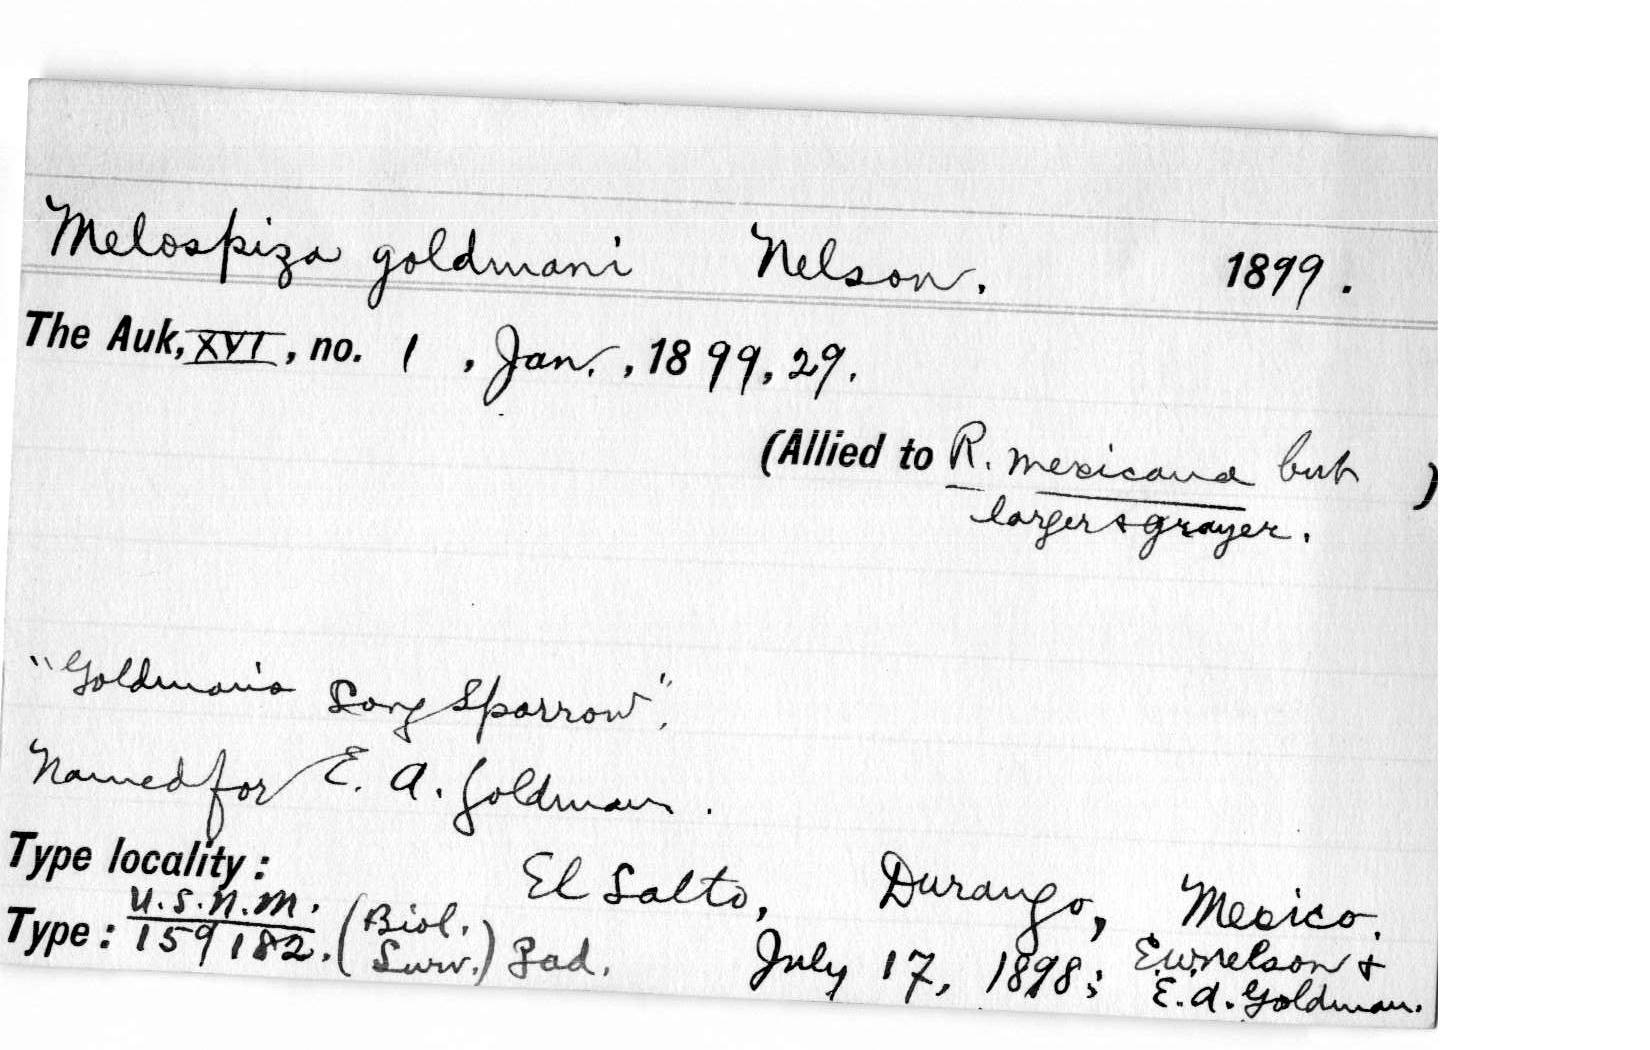 Melospiza goldmani Nelson. 1899.
The Auk, XVI, no. 1, Jan., 1899, 29.
(Allied to R. mexicana but )
larger & grayer.
"Goldman's Song Sparrow".
Named for E. A. Goldman.
Type locality:
El Salto, Durango, Mexico.
Type: U.S.N.M. 159182. (Biol. Surv.) ad. July 17, 1898; E.W. Nelson &
E. A. Goldman.